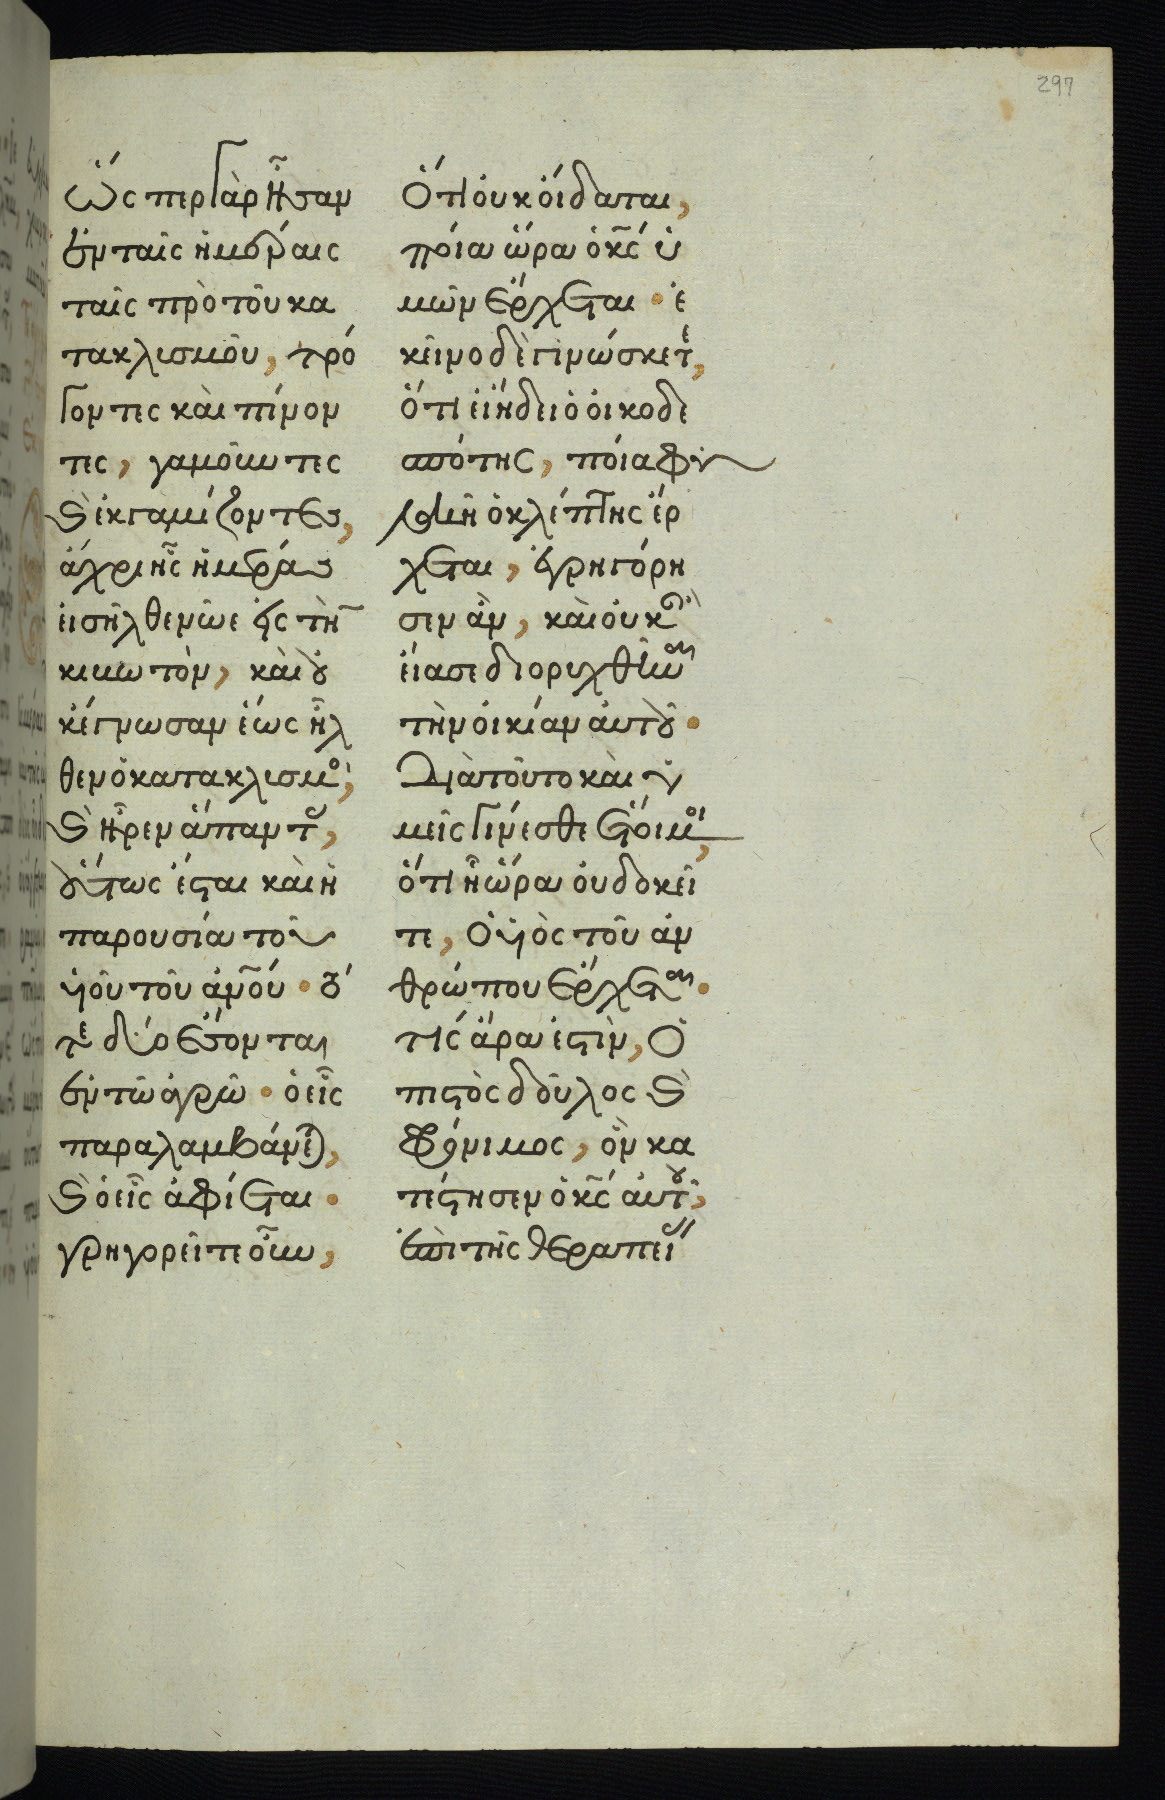 297
Ὥς περ γὰρ ἦσαν
ἐν ταῖς ἡμέραις
ταῖς πρὸ τοῦ κα
τακλισμοῦ, τρό
γοντες καὶ πίνον
τες, γαμοῦντες
ϗ ἐκγαμίζοντες,
ἄχρι ἧς ἡμέρας
εἰσῆλθε νῶε εἰς τὴν
κιβωτὸν, καὶ οὐ
κέγνωσαν ἕως ἦλ
θεν ὁ κατακλισμὸς,
ϗ ἦρεν ἅπαντας,
οὕτως ἔσται καὶ ἡ
παρουσία τοῦ
υἱοῦ τοῦ ἀν̅ου· τό
τε δύο ἔσονται
ἐν τῶ ἀγρῶ· ὁ εἷς
παραλαμβάνεται,
ϗ ὁ εἷς ἀφίεται·
γρηγορεῖτε οὖν,
Ὅτι οὐκ οἴδαται,
ποία ὥρα ὁ κ̅ς ὑ
μῶν ἔρχεται· ἐ
κεῖνο δὲ γινώσκετε,
ὅτι εἰ ἤδει ὁ οἰκοδε
σπότης, ποία φυ
λακῆ ὁ κλέπτης ἔρ
χεται, ἐγρηγόρη
σεν ἂν, καὶ οὐκ ἂν
εἴασε διορυχθῆναι
τὴν οἰκίαν αὐτοῦ·
Διὰ τοῦτο καὶ ὑ
μεῖς γίνεσθε ἕτοιμοι,
ὅτι ἧ ὥρα οὐ δοκεῖ
τε, Ὁ υἱὸς τοῦ ἀν
θρώπου ἔρχεται·
τίς ἄρα ἐστὶν, Ὁ
πιστὸς δοῦλος ϗ
φρόνιμος, ὃν κα
τέστησεν ὁ κ̅ς αὐτοῦ,
ἐπὶ τῆς θεραπείας